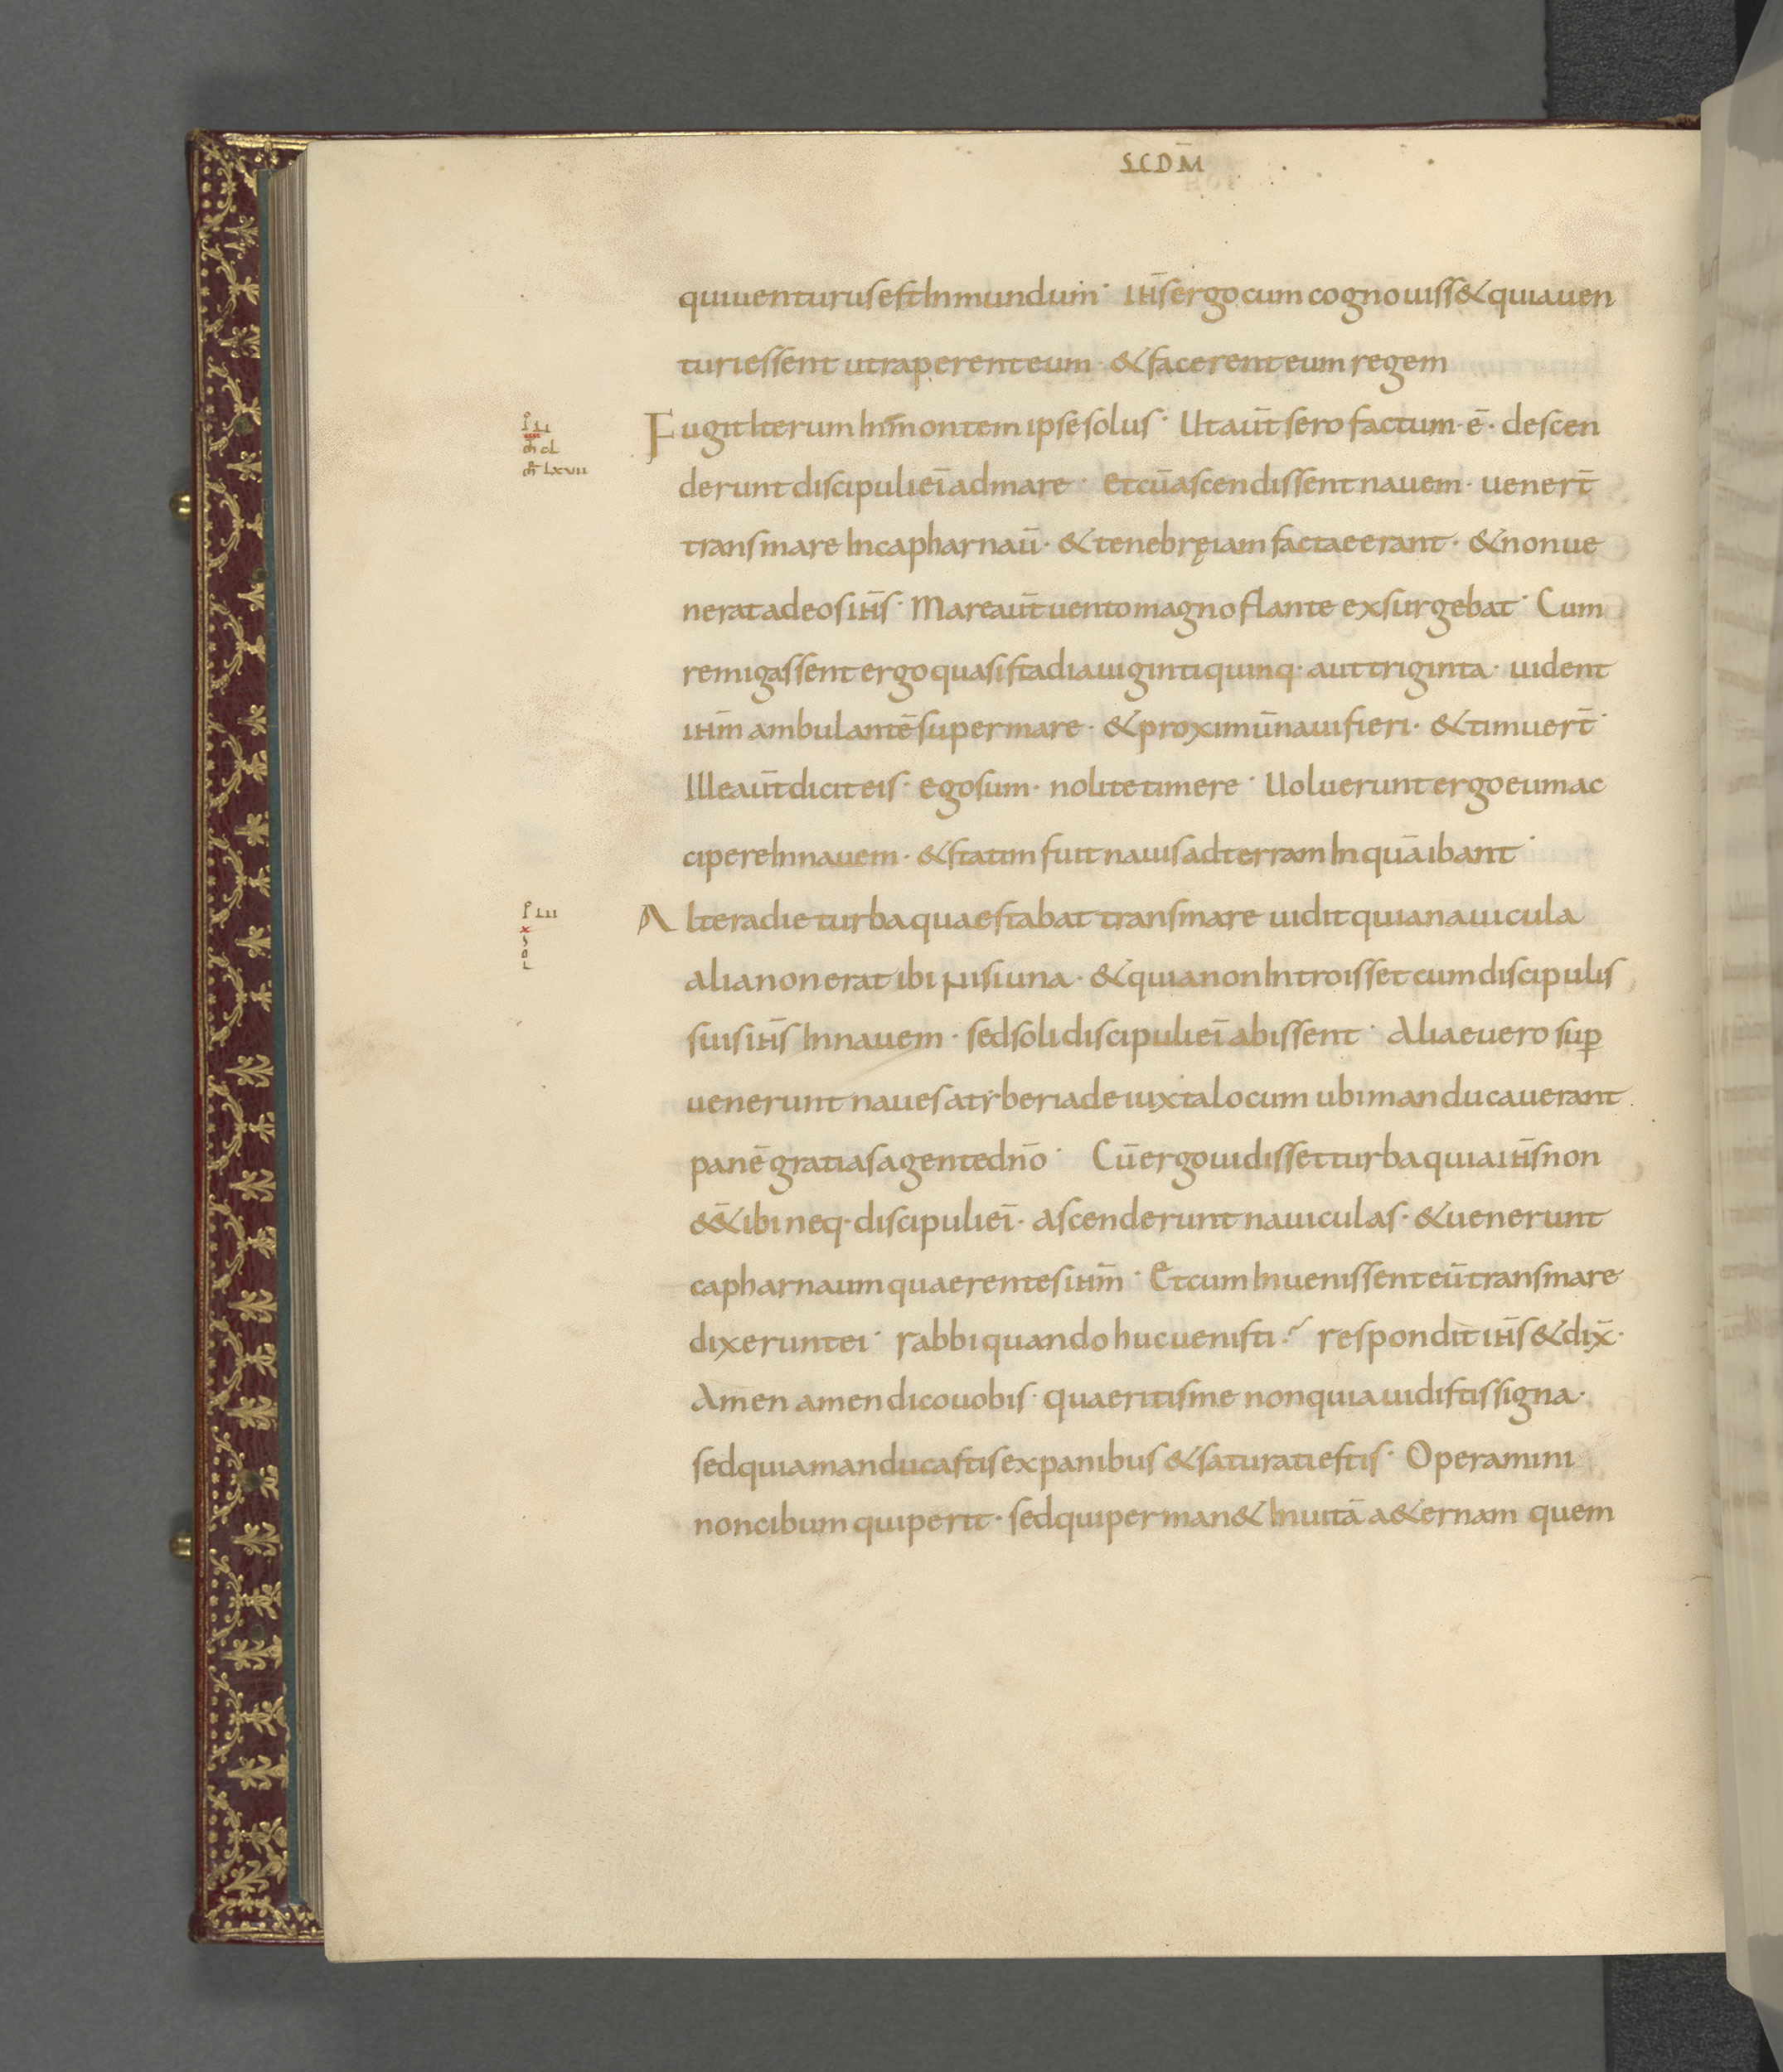 SCDM̄
quiuenturusestInmundum· ιħsergocumcognouiss&quiauen
turiessent utraperenteum· &facerenteumregem
FugitIterumInmontem ipsesolus· Utaūt sero factum·ē· descen
derunt discipulieī admare· Etcūascendissentnauem· uenert̄
transmare Incapharnaū· &tenebręiam factaeerant· &nonue
nerat adeosιħs· Mareaūt uentomagnoflante exsurgebat· Cum
remigassent ergoquasistadiauigintiquinq· auttriginta· uident
ιħm ambulantēsupermare· &proximūnauifieri· &timuert̄·
Illeaūtdiciteis· egosum· nolitetimere· Uoluerunt ergoeumac
cipereInnauem· &statim fuit nauisadterramInquāibant·
Alteradie turbaquaestabat transmare uidit quianauicula
alianonerat ibi nisiuna· &quianonIntroisset cumdiscipulis
suisιħs Innauem· sedsolidiscipulieī abissent· Aliaeuero sup̄
uenerunt nauesatyberiade iuxtalocum ubimanducauerant
panēgratiasagentedn̄o· Cūergouidissetturbaquiaιħsnon
e&̄ibi neq· discipulieī· Ascenderuntnauiculas· &uenerunt
capharnaumquaerentesιħm· EtcumInuenissenteūtransmare
dixeruntei· rabbiquandohucuenisti? responditιħs&dix̄·
Amen amendicouobis· quaeritisme nonquiauidistissigna·
sedquiamanducastisexpanibus&saturatiestis· Operamini
noncibumquiperit· sedquiperman&Inuitāa&ernam quem